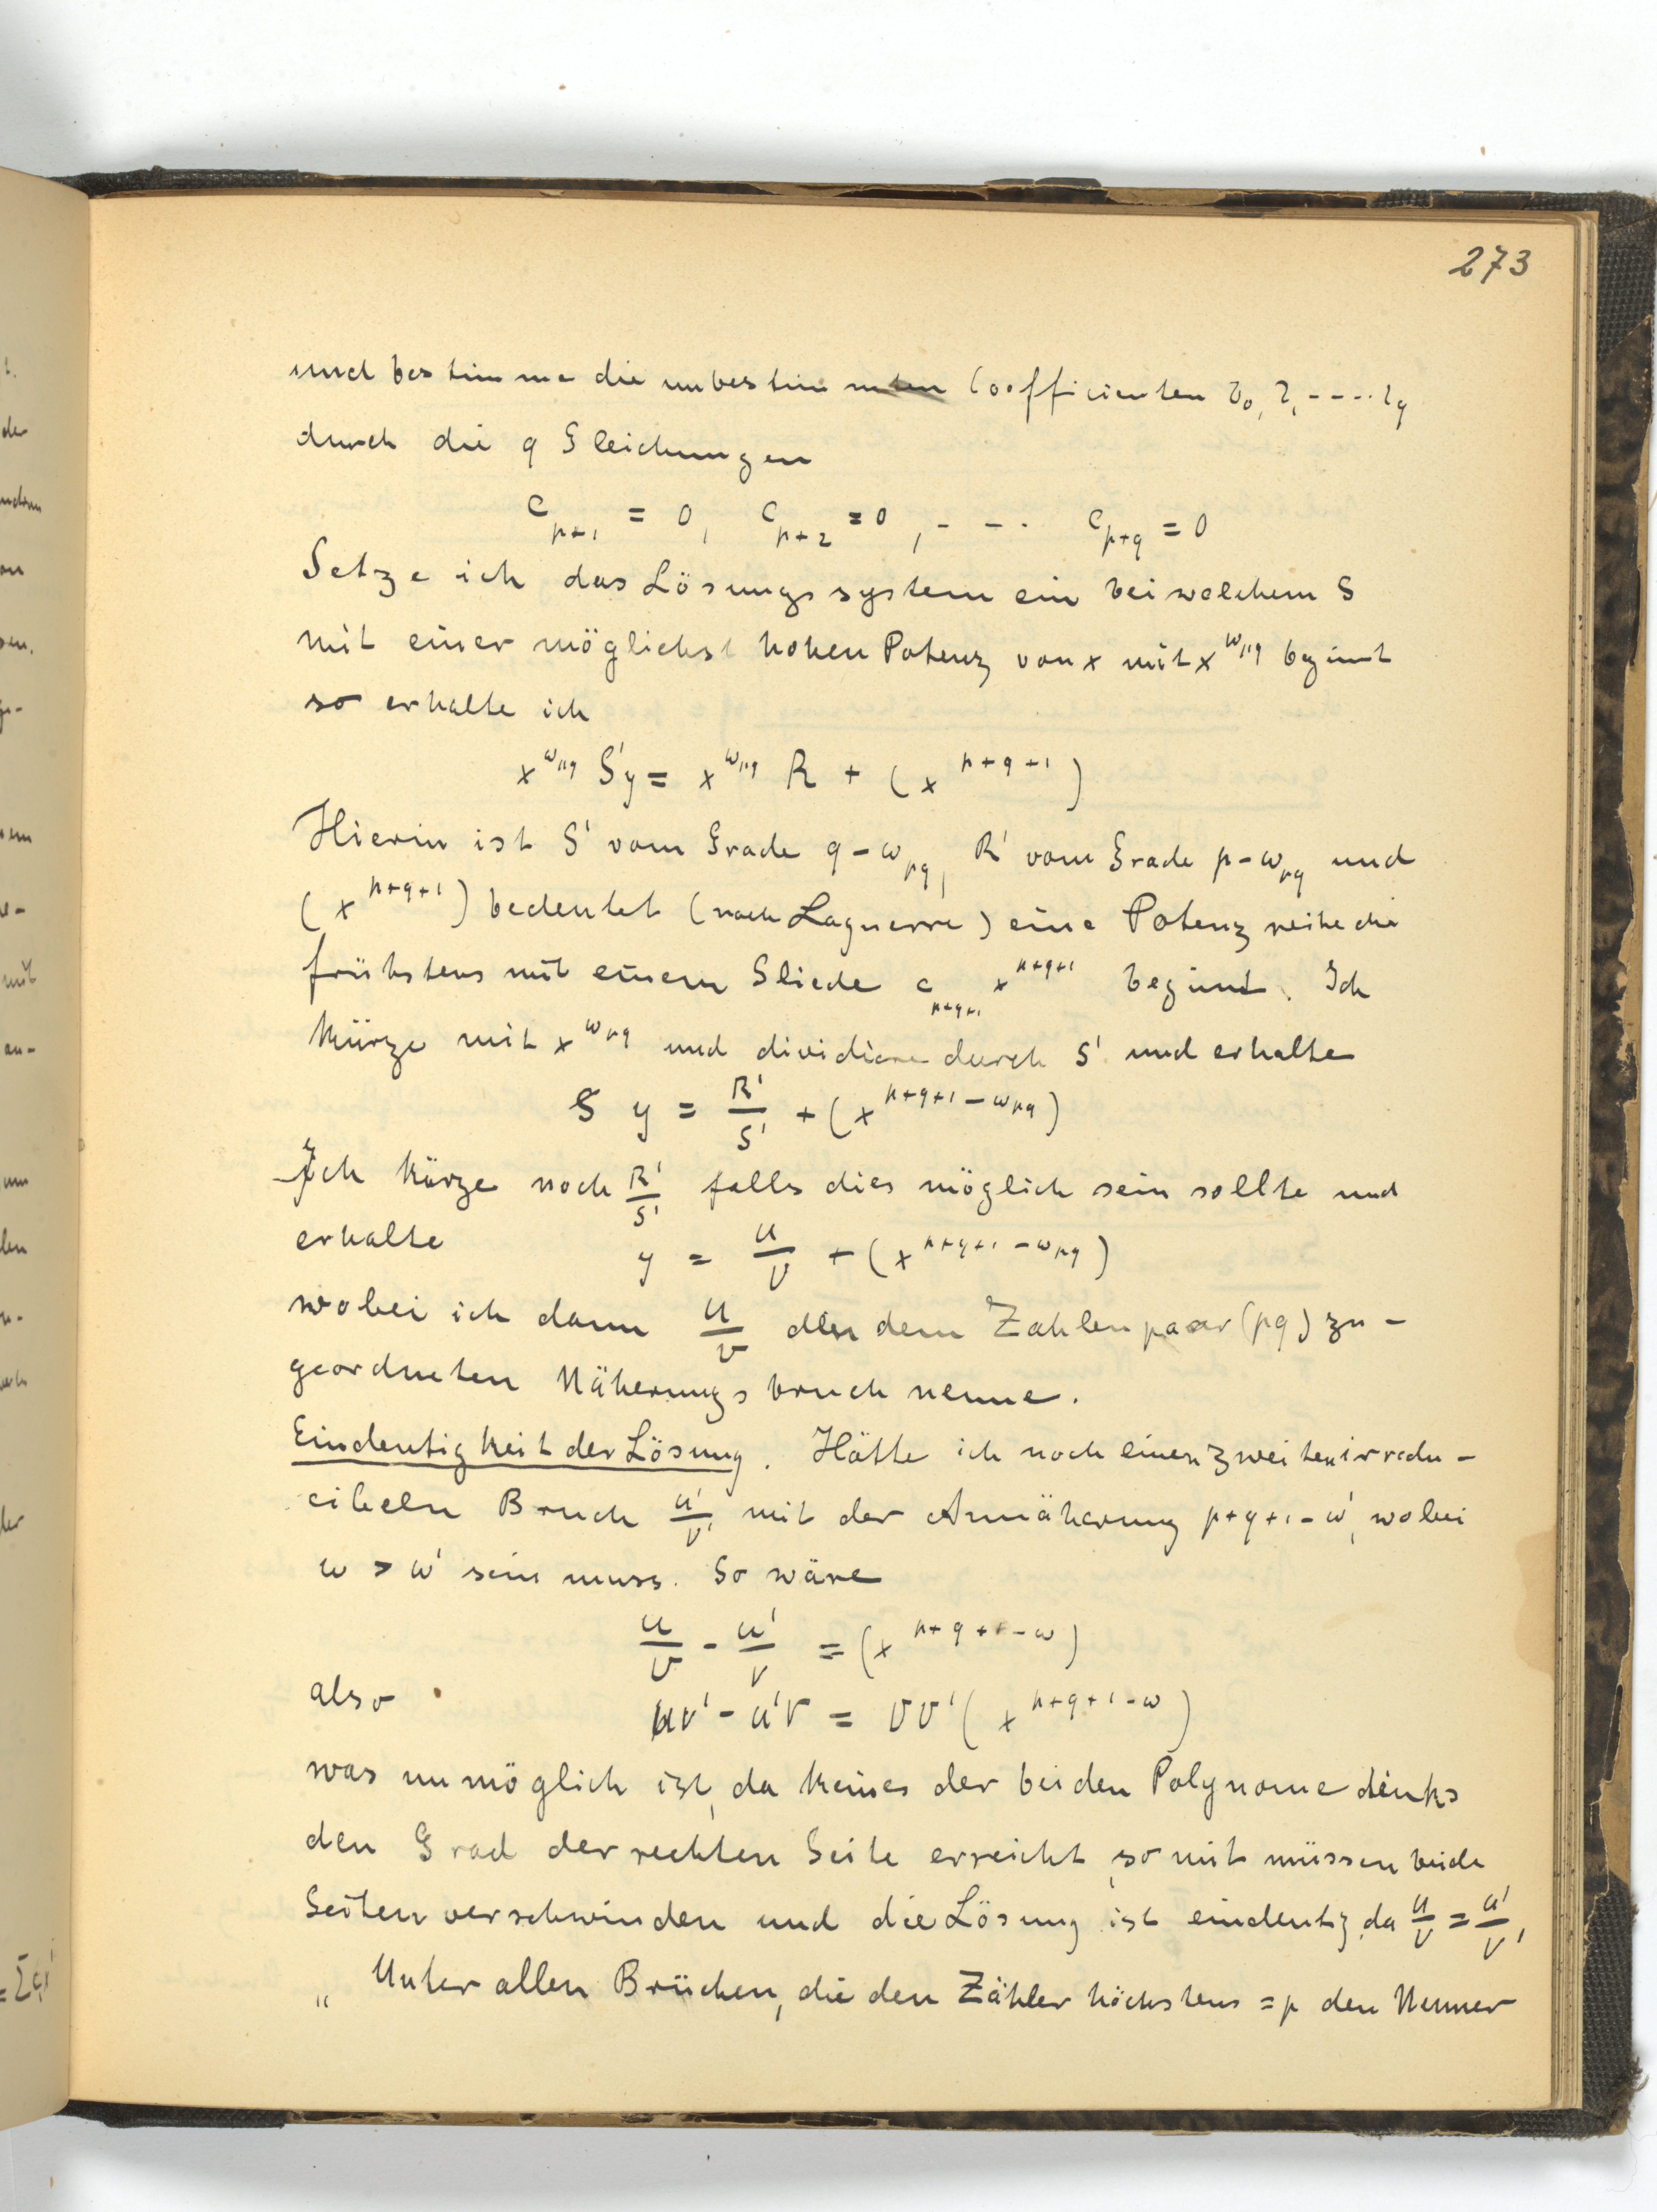 273
und bestimme die unbestimmten Coefficienten b₀, b₁ - - - - b_q
durch die q Gleichungen
c_{p+1} = 0, c_{p+2} = 0, - - - c_{p+q} = 0
Setze ich das Lösungssystem ein bei welchem S
mit einer möglichst hohen Potenz von x mit x^{ω_{pq}} begint
so erhalte ich
x^{ω_{pq}} S'y = x^{ω_{pq}} R + (x^{p+q+1})
Hierin ist S' vom Grade q - ω_{pq}, R' vom Grade p - ω_{pq} und
(x^{p+q+1}) bedeutet (nach Laguerre) eine Potenzreihe die
frühstens mit einem Gliede c_{p+q+1} x^{p+q+1} begint. Ich
kürze mit x^{ω_{pq}} und dividiere durch S' und erhalte
y = R'/S' + (x^{p+q+1-ω_{pq}})
Ich kürze noch R'/S' falls dies möglich sein sollte und
erhalte y = U/V + (x^{p+q+1-ω_{pq}})
wobei ich dann U/V den dem Zahlenpaar (pq) zu-
geordneten Näherungsbruch nenne.
Eindeutigkeit der Lösung. Hätte ich noch einen zweiten irredu-
cibeln Bruch U'/V' mit der Annäherung p+q+1-ω', wobei
ω > ω' sein muss. So wäre
U/V - U'/V = (x^{p+q+1-ω})
also UV' - U'V = VV' (x^{p+q+1-ω})
was unmöglich ist, da keines der beiden Polynome links
den Grad der rechten Seite erreicht, somit müssen beide
Seiten verschwinden und die Lösung ist eindeutig, da U/V = U'/V'
„ Unter allen Brüchen, die den Zähler höchstens = p den Nenner